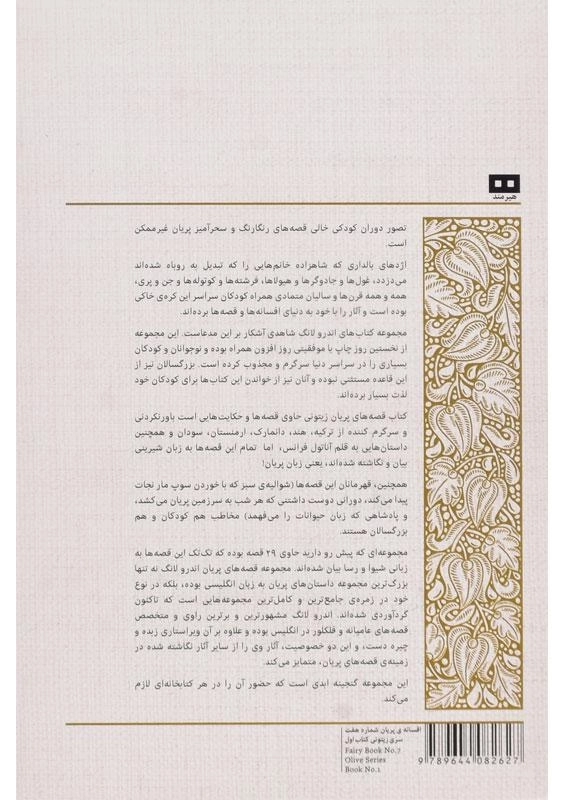 هیرمند
تصور دوران کودکی خالی قصه‌های رنگارنگ و سحرآمیز پریان غیرممکن
است.
اژدهای بالداری که شاهزاده خانم‌هایی را که تبدیل به روباه شده‌اند
می‌دزدد، غول‌ها و جادوگرها و هیولاها، فرشته‌ها و کوتوله‌ها و جن و پری،
همه و همه قرن‌ها و سالیان متمادی همراه کودکان سراسر این کره‌ی خاکی
بوده است و آنار را با خود به دنیای افسانه‌ها و قصه‌ها برده‌اند.
مجموعه کتاب‌های اندرو لانگ شاهدی آشکار بر این مدعاست. این مجموعه
از نخستین روز چاپ با موفقیتی روز افزون همراه بوده و نوجوانان و کودکان
بسیاری را در سراسر دنیا سرگرم و مجذوب کرده است. بزرگسالان نیز از
این قاعده مستثنی نبوده و آنان نیز از خواندن این کتاب‌ها برای کودکان خود
لذت بسیار برده‌اند.
کتاب قصه‌های پریان زیتونی حاوی قصه‌ها و حکایت‌هایی است باورنکردنی
و سرگرم کننده از ترکیه، هند، دانمارک، ارمنستان، سودان و همچنین
داستان‌هایی به قلم آناتول فرانس، اما تمام این قصه‌ها به زبان شیرینی
بیان و نگاشته شده‌اند، یعنی زبان پریان!
همچنین، قهرمانان این قصه‌ها (شوالیه‌ی سبز که با خوردن سوپ مار نجات
پیدا می‌کند، دورانی دوست داشتنی که هر شب به سرزمین پریان می‌کشد،
و پادشاهی که زبان حیوانات را می‌فهمد) مخاطب هم کودکان و هم
بزرگسالان هستند.
مجموعه‌ای که پیش رو دارید حاوی ۲۹ قصه بوده که تک‌تک این قصه‌ها به
زبانی شیوا و رسا بیان شده‌اند. مجموعه قصه‌های پریان اندرو لانگ نه تنها
بزرگ‌ترین مجموعه داستان‌های پریان به زبان انگلیسی بوده، بلکه در نوع
خود در زمره‌ی جامع‌ترین و کامل‌ترین مجموعه‌هایی است که تاکنون
گردآوردی شده‌اند. اندرو لانگ مشهورترین و برترین راوی و متخصص
قصه‌های عامیانه و فلکلور در انگلیس بوده و علاوه بر آن ویراستاری زبده و
چیره دست، و این دو خصوصیت، آثار وی را از سایر آثار نگاشته شده در
زمینه‌ی قصه‌های پریان، متمایز می‌کند.
این مجموعه گنجینه ابدی است که حضور آن را در هر کتابخانه‌ای لازم
می‌کند.
افسانه ی پریان شماره هفت
سری زیتونی کتاب اول
Fairy Book No.7
Olive Series
Book No.1
9 789644 082627